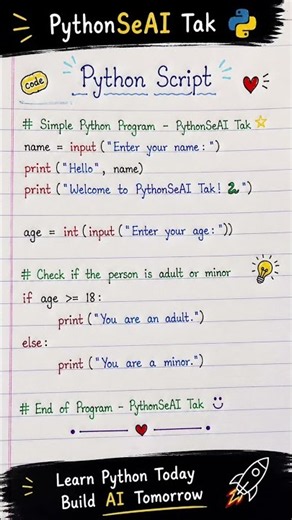 PythonSeAI Tak
code
Python Script
# Simple Python Program - PythonSeAI Tak
name = input ("Enter your name:")
print ("Hello", name)
print ("Welcome to PythonSeAI Tak! 🐍")
age = int(input ("Enter your age:"))
# Check if the person is adult or minor
if age >= 18:
print ("You are an adult.")
else:
print ("You are a minor.")
# End of Program - PythonSeAI Tak
Learn Python Today
Build AI Tomorrow